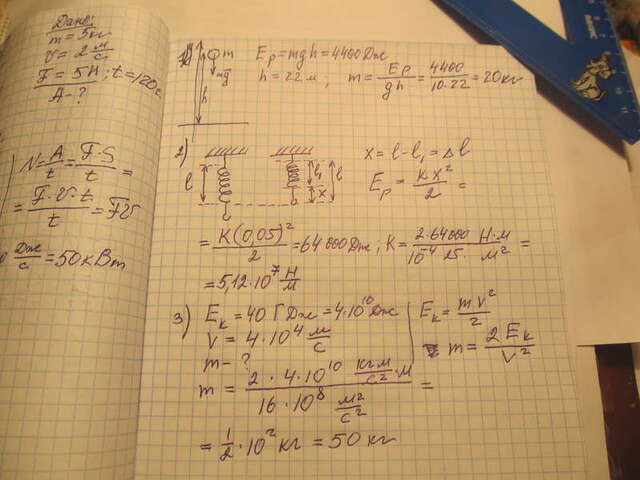 Дано:
m = 5кг
V = 2 м/с
F = 5Н; t = 120с
A - ?
N = A/t = F·S/t =
= F·v·t/t = FV
Дж/с = 50кВт
1)
m
mg
h
Ep = mgh = 4400 Дж
h = 22 м; m = Ep/gh = 4400/10·22 = 20кг
2)
l
l₁
x
l
x = l - l₁ = Δl
Ep = kx²/2 =
= K(0,05)²/2 = 64000Дж, K = 2·64000/10⁻⁴·25 · Н·м/м² =
= 5,12·10⁷ Н/м
3) Eк = 40 ГДж = 4·10¹⁰ Дж
V = 4·10⁴ м/с
m - ?
Eк = mv²/2
m = 2Eк/V²
m = 2·4·10¹⁰ кг·м/с²·м / 16·10⁸ м²/с² =
= 1/2·10² кг = 50 кг